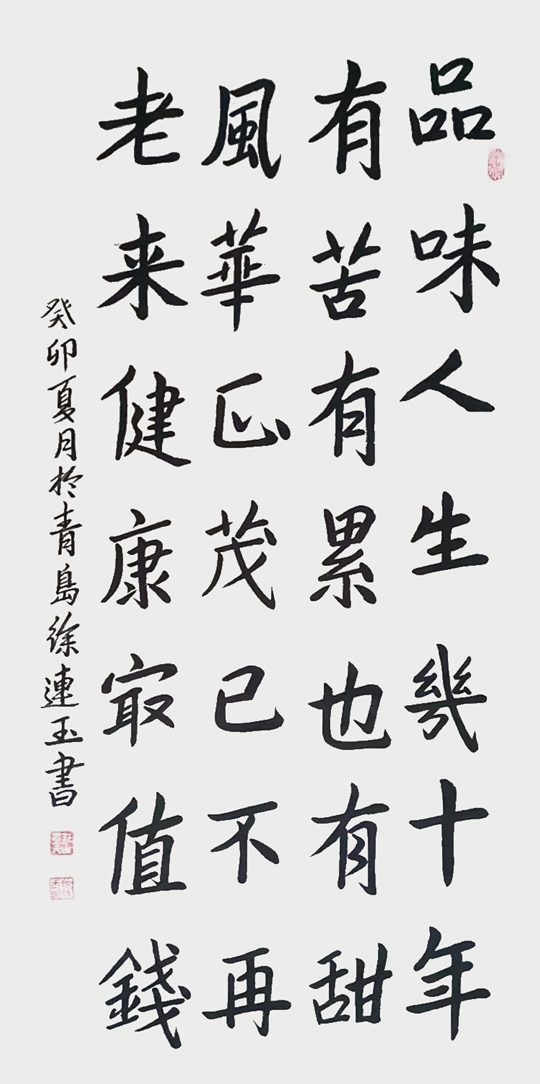 品味人生幾十年
有苦有累也有甜
風華正茂已不再
老来健康㝡值錢
癸卯夏月於青島徐連玉書